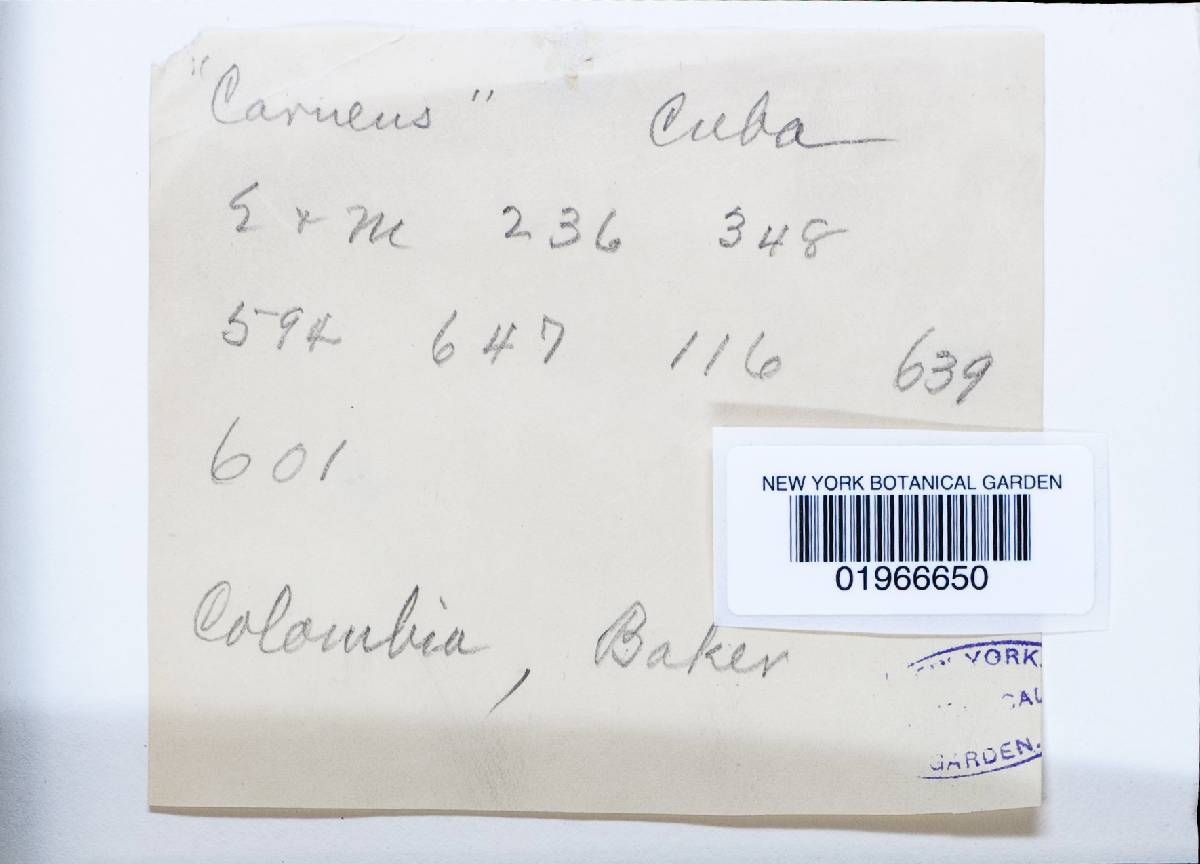 "Carneus" Cuba
E + M 236 348
594 647 116 639
601
NEW YORK BOTANICAL GARDEN
01966650
Colombia, Baker
YORK
GARDEN.